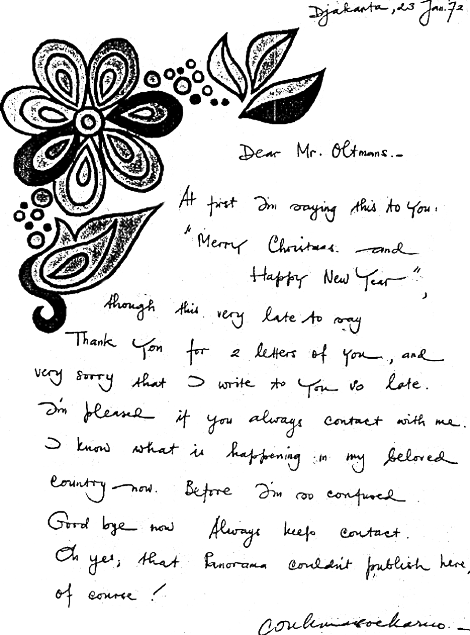 Djakarta, 23 Jan. 72
Dear Mr. Oltmans.-
At first I'm saying this to you:
"Merry Christmas and
Happy New Year",
though this very late to say
Thank you for 2 letters of you, and
very sorry that I write to you so late.
I'm pleased if you always contact with me.
I know what is happening in my beloved
country now. Before I'm so confused.
Good bye now Always keep contact.
Oh yes, that Panorama couldn't publish here,
of course!